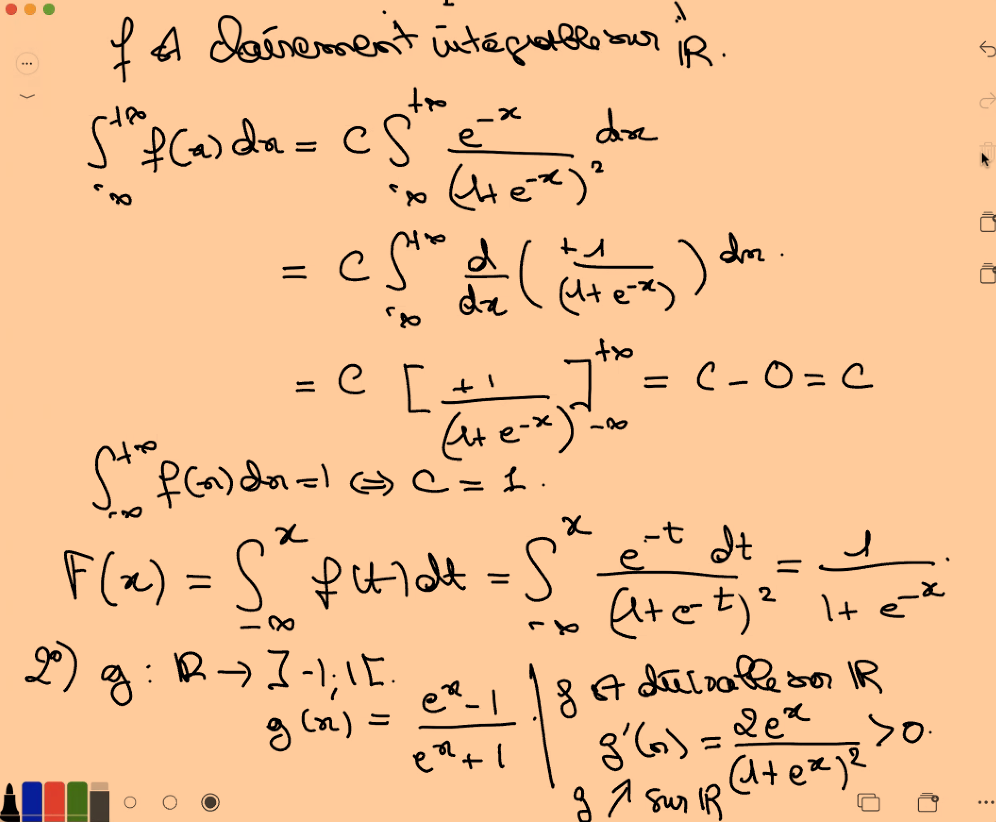 f est clairement intégrable sur ℝ.
∫_{-∞}^{+∞} f(x) dx = C ∫_{-∞}^{+∞} e^{-x} / (1 + e^{-x})² dx
= C ∫_{-∞}^{+∞} d/dx ( +1 / (1 + e^{-x}) ) dx.
= C [ +1 / (1 + e^{-x}) ]_{-∞}^{+∞} = C - 0 = C
∫_{-∞}^{+∞} f(x) dx = 1 ⇔ C = 1.
F(x) = ∫_{-∞}^{x} f(t) dt = ∫_{-∞}^{x} e^{-t} dt / (1 + e^{-t})² = 1 / (1 + e^{-x}).
2°) g : ℝ → ]-1; 1[.
g(x) = (e^x - 1) / (e^x + 1).
g est dérivable sur ℝ
g'(x) = 2e^x / (1 + e^x)² > 0.
g ↗ sur ℝ